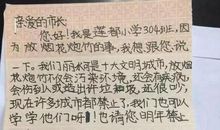 亲爱的市长
您好!我是莲都小学304班,因
为放烟花炮竹的事,我想跟您说
一下。我们丽水可是十大文明城市,放烟
花炮竹不仅会污染环境,还会有疾病,
会伤到人或造出许垃圾,还很吵,
现在许多城市都禁止了,我们也可以
学学他们呀!也请您明年禁止